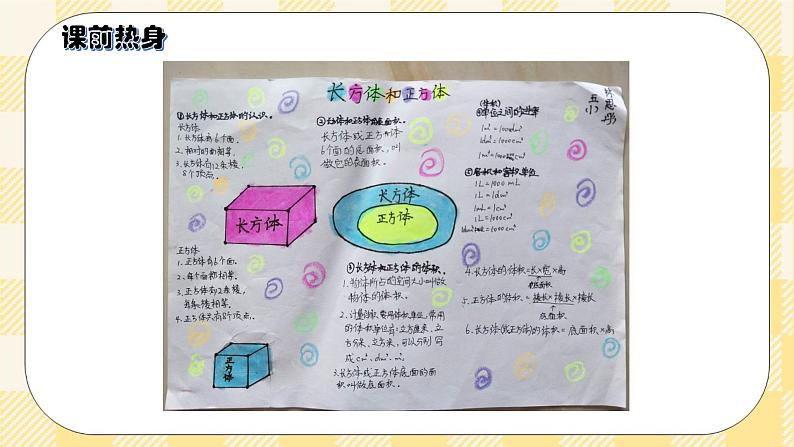 课前热身
长方体和正方体
五(1)
①长方体和正方体的认识。
长方体
1.长方体有6个面。
2.相对的面相等。
3.长方体有12条棱,
8个顶点。
长方体
正方体
1.正方体有6个面。
2.每个面都相等。
3.正方体有12条棱
每条棱相等。
4.正方体共有8个顶点。
正方体
②长方体和正方体的表面积。
长方体或正方体
6个面的总面积,叫
做它的表面积。
长方体
正方体
③长方体和正方体的体积。
1.物体所占的空间大小叫做
物体的体积。
2.计量体积要用体积单位,常用
的体积单位有:立方厘米、立
方分米、立方米,可以分别写
成cm³、dm³、m³。
3.长方体或正方体底面的面
积叫做底面积。
(体积)
④单位之间的进率
1m³=1000dm³
1dm³=1000cm³
⑤容积和容积单位
1L=1000mL
1L=1dm³
1mL=1cm³
1L=1000cm³
4.长方体的体积=长×宽×高
底面积
5.正方体的体积=棱长×棱长×棱长
底面积
6.长方体(或正方体)的体积=底面积×高